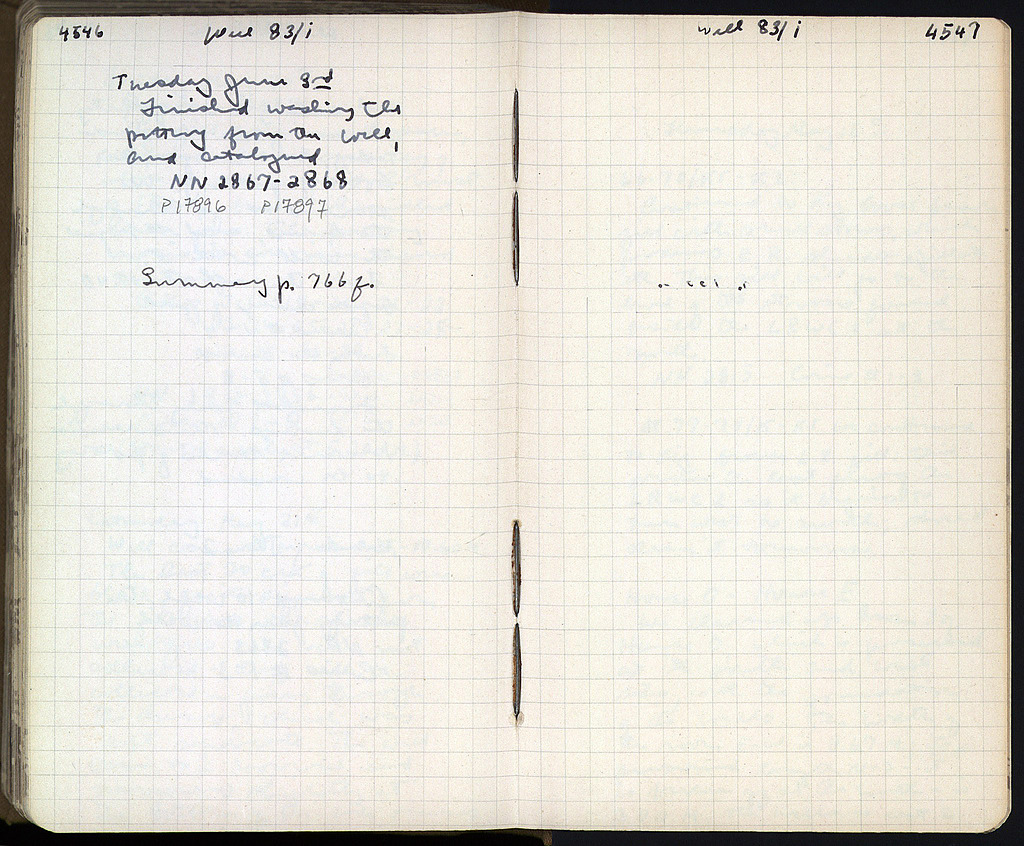 4546 well 83/i
Tuesday June 3rd
Finished washing the
pottery from the well,
and catalogued
NN 2867-2868
P17896 P17897
Summary p. 766 f.
well 83/i 4547